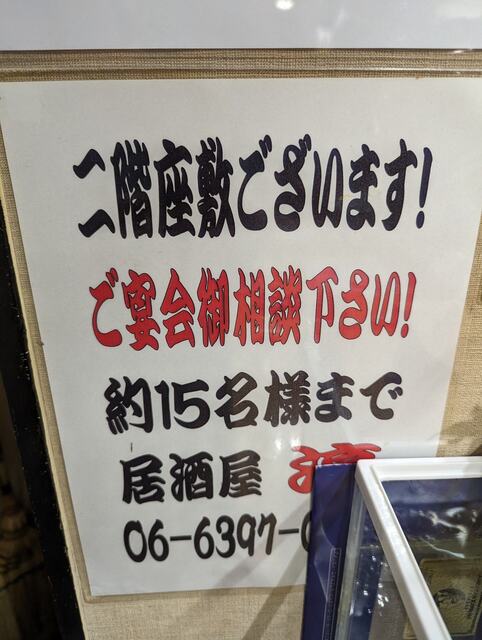 二階座敷ございます!
ご宴会御相談下さい!
約15名様まで
居酒屋
06-6397-